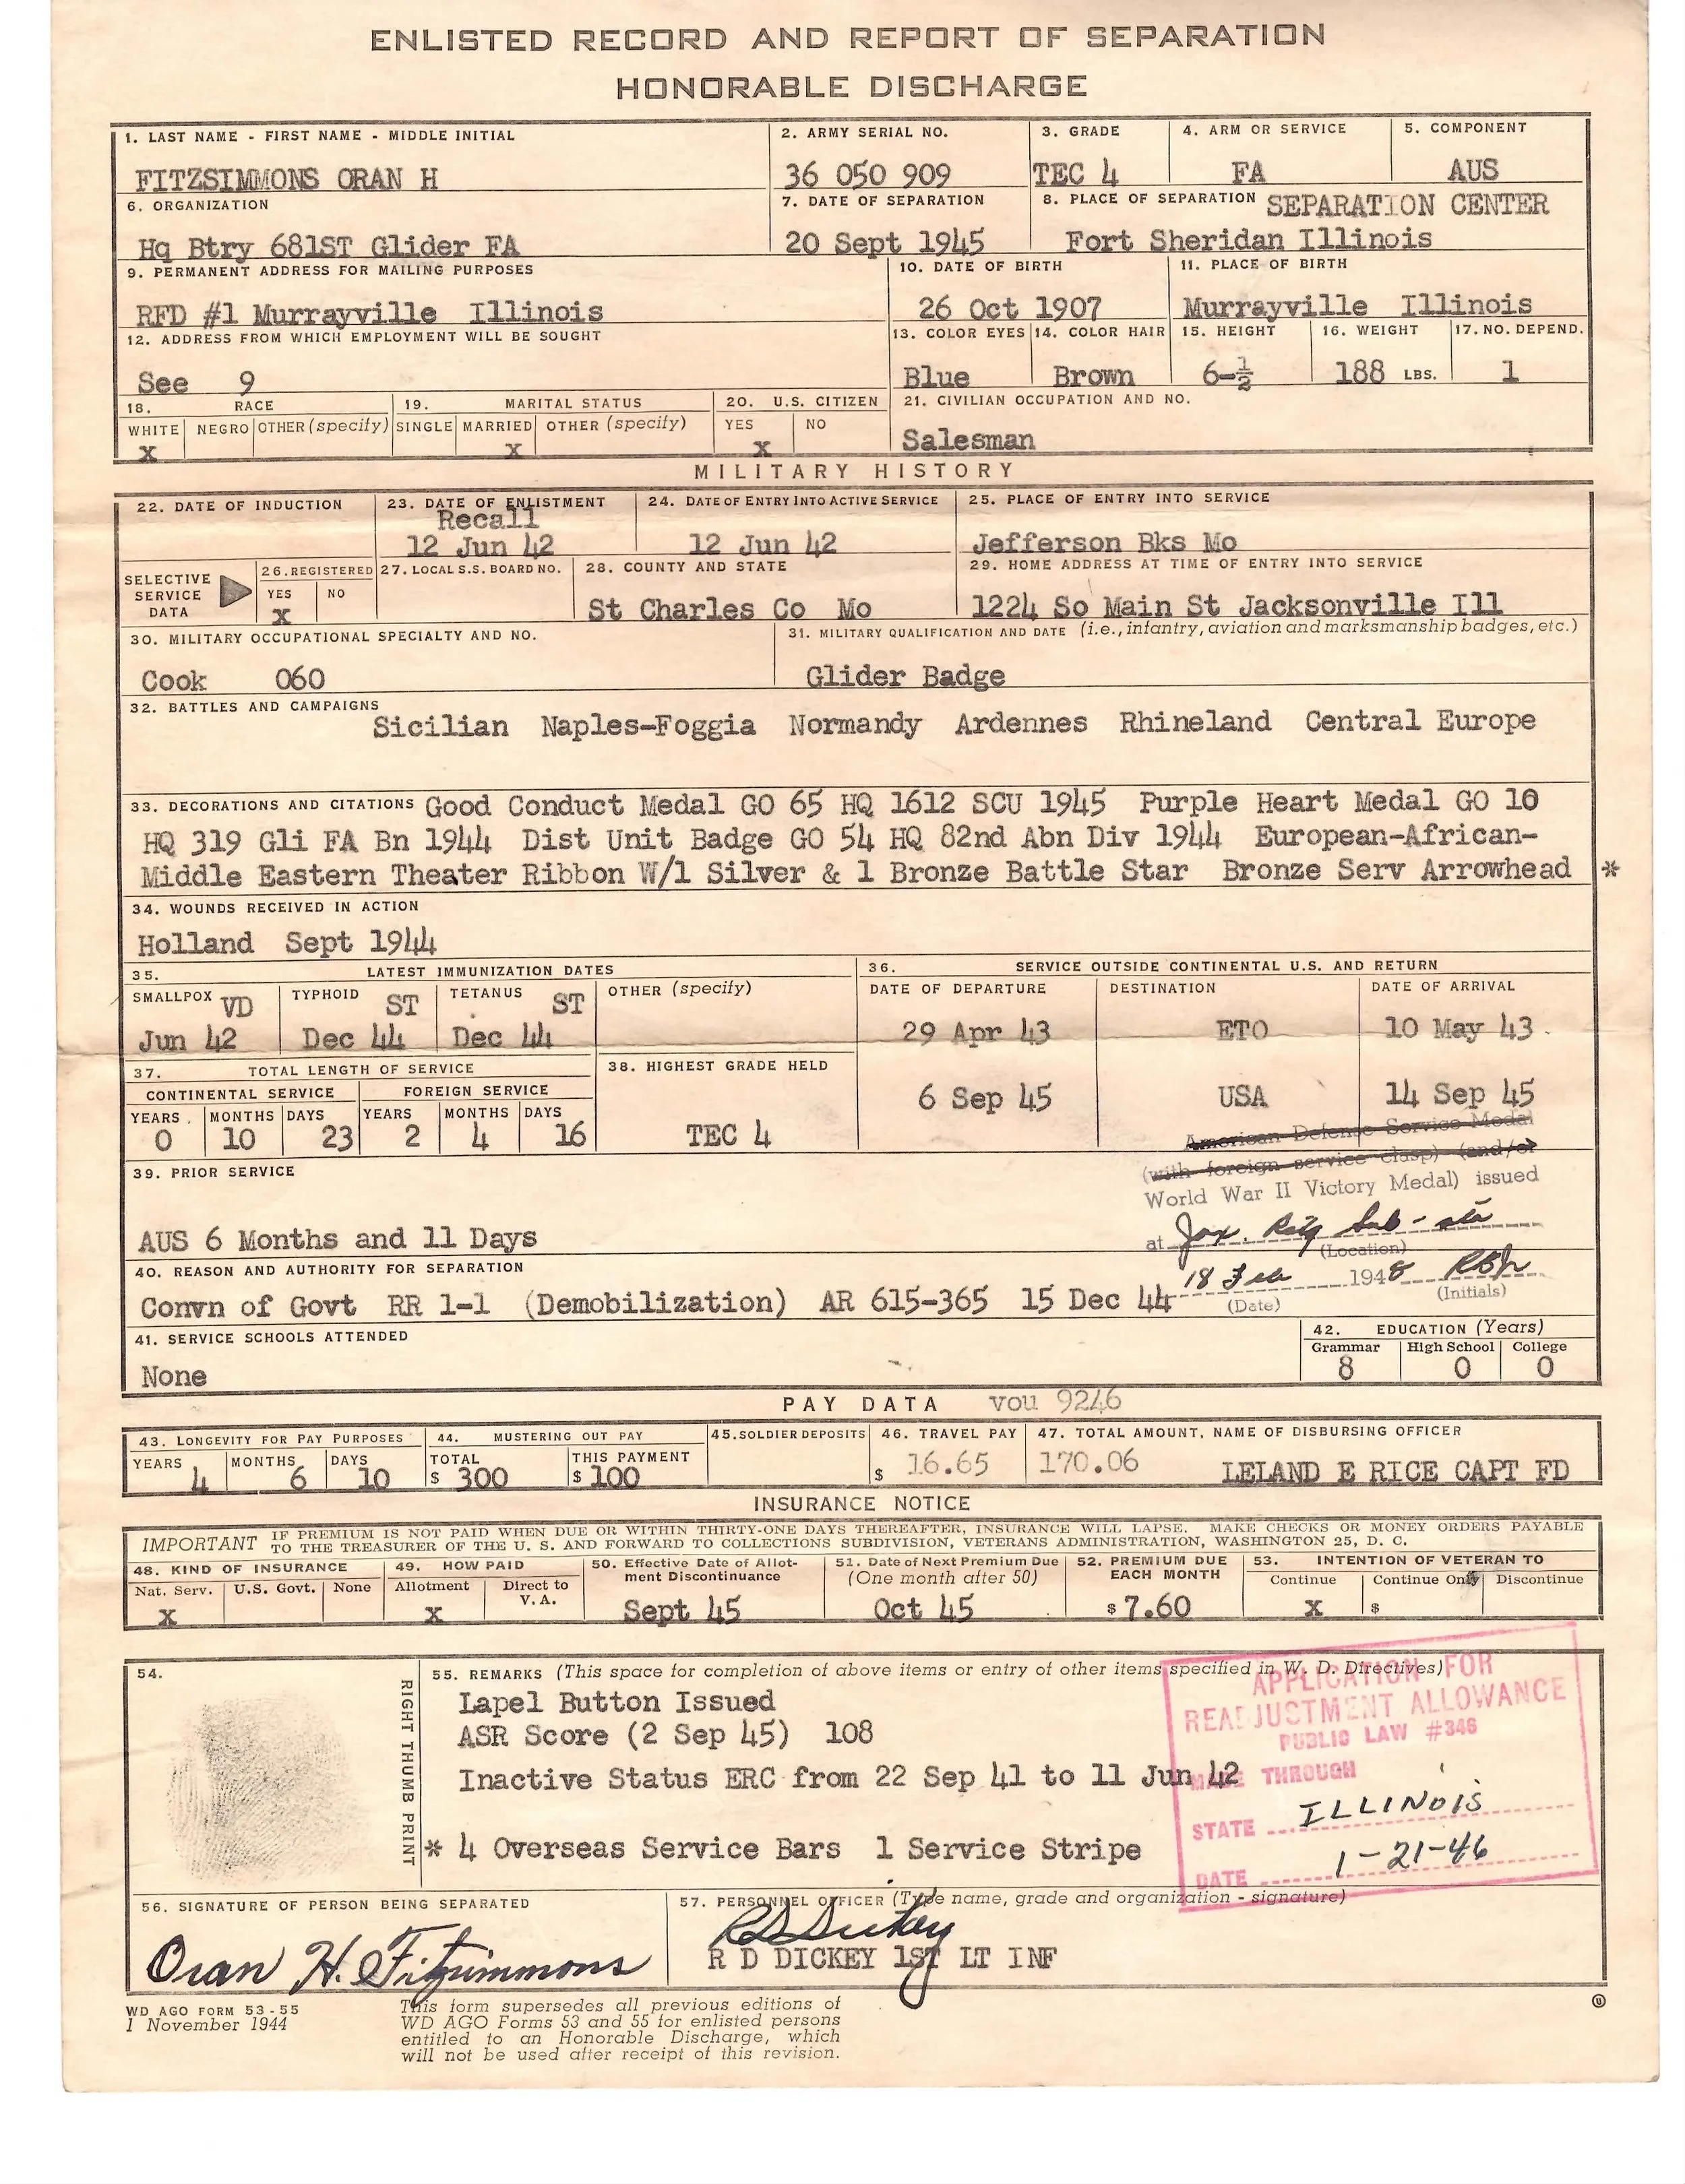 ENLISTED RECORD AND REPORT OF SEPARATION
HONORABLE DISCHARGE
1. LAST NAME - FIRST NAME - MIDDLE INITIAL
2. ARMY SERIAL NO.
3. GRADE
4. ARM OR SERVICE
5. COMPONENT
FITZSIMMONS ORAN H
36 050 909
TEC 4
FA
AUS
6. ORGANIZATION
7. DATE OF SEPARATION
8. PLACE OF SEPARATION SEPARATION CENTER
Hq Btry 681ST Glider FA
20 Sept 1945
Fort Sheridan Illinois
9. PERMANENT ADDRESS FOR MAILING PURPOSES
10. DATE OF BIRTH
11. PLACE OF BIRTH
RFD #1 Murrayville Illinois
26 Oct 1907
Murrayville Illinois
12. ADDRESS FROM WHICH EMPLOYMENT WILL BE SOUGHT
13. COLOR EYES
14. COLOR HAIR
15. HEIGHT
16. WEIGHT
17. NO. DEPEND.
See 9
Blue
Brown
6-½
188 LBS.
1
18. RACE
19. MARITAL STATUS
20. U.S. CITIZEN
21. CIVILIAN OCCUPATION AND NO.
WHITE NEGRO OTHER (specify) SINGLE MARRIED OTHER (specify) YES NO
X X X
Salesman
MILITARY HISTORY
22. DATE OF INDUCTION
23. DATE OF ENLISTMENT
24. DATE OF ENTRY INTO ACTIVE SERVICE
25. PLACE OF ENTRY INTO SERVICE
Recall
12 Jun 42
12 Jun 42
Jefferson Bks Mo
SELECTIVE SERVICE DATA
26. REGISTERED
27. LOCAL S.S. BOARD NO.
28. COUNTY AND STATE
29. HOME ADDRESS AT TIME OF ENTRY INTO SERVICE
YES NO
X
St Charles Co Mo
1224 So Main St Jacksonville Ill
30. MILITARY OCCUPATIONAL SPECIALTY AND NO.
31. MILITARY QUALIFICATION AND DATE (i.e., infantry, aviation and marksmanship badges, etc.)
Cook 060
Glider Badge
32. BATTLES AND CAMPAIGNS
Sicilian Naples-Foggia Normandy Ardennes Rhineland Central Europe
33. DECORATIONS AND CITATIONS Good Conduct Medal GO 65 HQ 1612 SCU 1945 Purple Heart Medal GO 10
HQ 319 Gli FA Bn 1944 Dist Unit Badge GO 54 HQ 82nd Abn Div 1944 European-African-
Middle Eastern Theater Ribbon W/1 Silver & 1 Bronze Battle Star Bronze Serv Arrowhead *
34. WOUNDS RECEIVED IN ACTION
Holland Sept 1944
35. LATEST IMMUNIZATION DATES
36. SERVICE OUTSIDE CONTINENTAL U.S. AND RETURN
SMALLPOX VD
TYPHOID ST
TETANUS ST
OTHER (specify)
DATE OF DEPARTURE
DESTINATION
DATE OF ARRIVAL
Jun 42
Dec 44
Dec 44
29 Apr 43
ETO
10 May 43
37. TOTAL LENGTH OF SERVICE
38. HIGHEST GRADE HELD
CONTINENTAL SERVICE
FOREIGN SERVICE
6 Sep 45
USA
14 Sep 45
YEARS MONTHS DAYS YEARS MONTHS DAYS
0 10 23 2 4 16
TEC 4
American Defense Service Medal
(with foreign service clasp) (and/or
World War II Victory Medal) issued
39. PRIOR SERVICE
AUS 6 Months and 11 Days
at Jax. Rctg Sub-sta
(Location)
40. REASON AND AUTHORITY FOR SEPARATION
18 Feb 1948
(Date) (Initials)
Convn of Govt RR 1-1 (Demobilization) AR 615-365 15 Dec 44
41. SERVICE SCHOOLS ATTENDED
42. EDUCATION (Years)
Grammar High School College
None
8 0 0
PAY DATA vou 9246
43. LONGEVITY FOR PAY PURPOSES
44. MUSTERING OUT PAY
45. SOLDIER DEPOSITS
46. TRAVEL PAY
47. TOTAL AMOUNT, NAME OF DISBURSING OFFICER
YEARS MONTHS DAYS TOTAL THIS PAYMENT
4 6 10 $ 300 $ 100 $ 16.65 170.06 LELAND E RICE CAPT FD
INSURANCE NOTICE
IMPORTANT IF PREMIUM IS NOT PAID WHEN DUE OR WITHIN THIRTY-ONE DAYS THEREAFTER, INSURANCE WILL LAPSE. MAKE CHECKS OR MONEY ORDERS PAYABLE
TO THE TREASURER OF THE U. S. AND FORWARD TO COLLECTIONS SUBDIVISION, VETERANS ADMINISTRATION, WASHINGTON 25, D. C.
48. KIND OF INSURANCE
49. HOW PAID
50. Effective Date of Allotment Discontinuance
51. Date of Next Premium Due (One month after 50)
52. PREMIUM DUE EACH MONTH
53. INTENTION OF VETERAN TO
Nat. Serv. U.S. Govt. None Allotment Direct to V. A. Continue Continue Only Discontinue
X X Sept 45 Oct 45 $ 7.60 X $
54.
RIGHT THUMB PRINT
55. REMARKS (This space for completion of above items or entry of other items specified in W. D. Directives)
Lapel Button Issued
ASR Score (2 Sep 45) 108
Inactive Status ERC from 22 Sep 41 to 11 Jun 42
* 4 Overseas Service Bars 1 Service Stripe
APPLICATION FOR
READJUSTMENT ALLOWANCE
PUBLIC LAW #346
MADE THROUGH
STATE ILLINOIS
DATE 1-21-46
56. SIGNATURE OF PERSON BEING SEPARATED
57. PERSONNEL OFFICER (Type name, grade and organization - signature)
Oran H. Fitzsimmons
RD Dickey
R D DICKEY 1ST LT INF
WD AGO FORM 53-55
1 November 1944
This form supersedes all previous editions of
WD AGO Forms 53 and 55 for enlisted persons
entitled to an Honorable Discharge, which
will not be used after receipt of this revision.